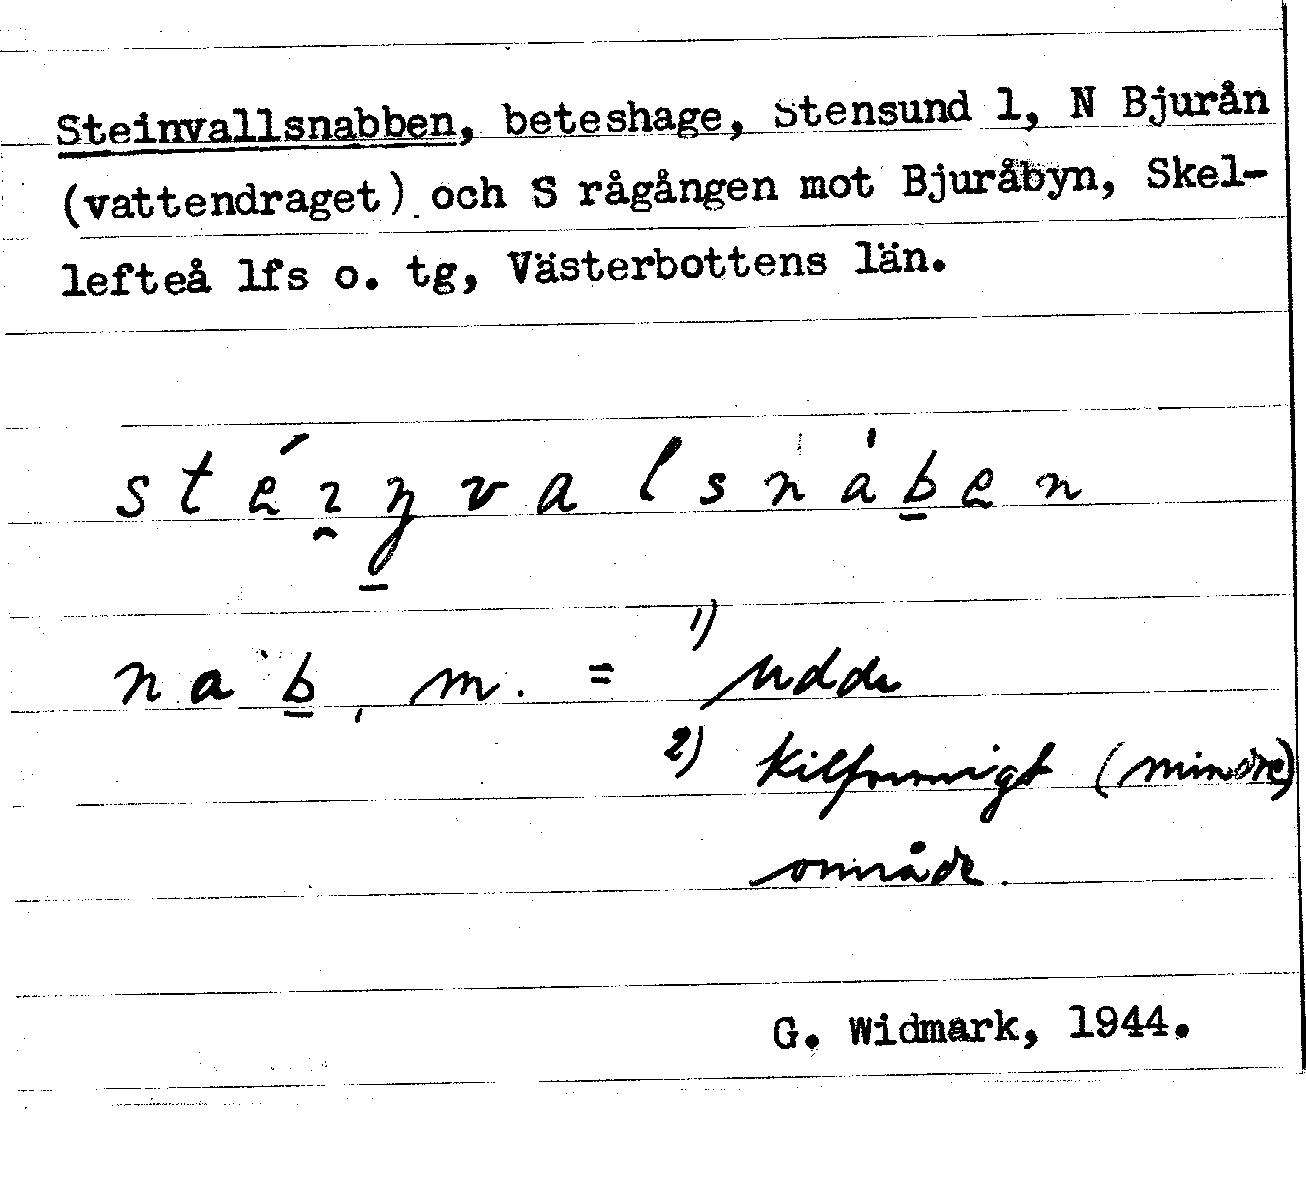 Steinvallsnabben, beteshage, Stensund 1, N Bjurån
(vattendraget) och S rågången mot Bjuråbyn, Skel-
lefteå lfs o. tg, Västerbottens län.
stéi̯n̠valsnȧb̠en
nab̠, m. = 1) udde
2) kilformigt (mindre)
område.
G. Widmark, 1944.